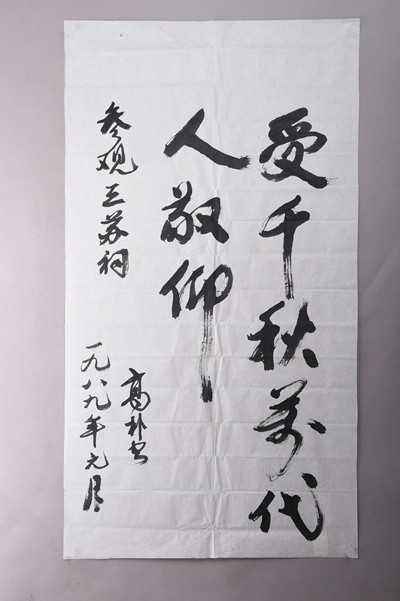 受千秋万代
人敬仰
参观三苏祠
高朴书
一九八九年元月